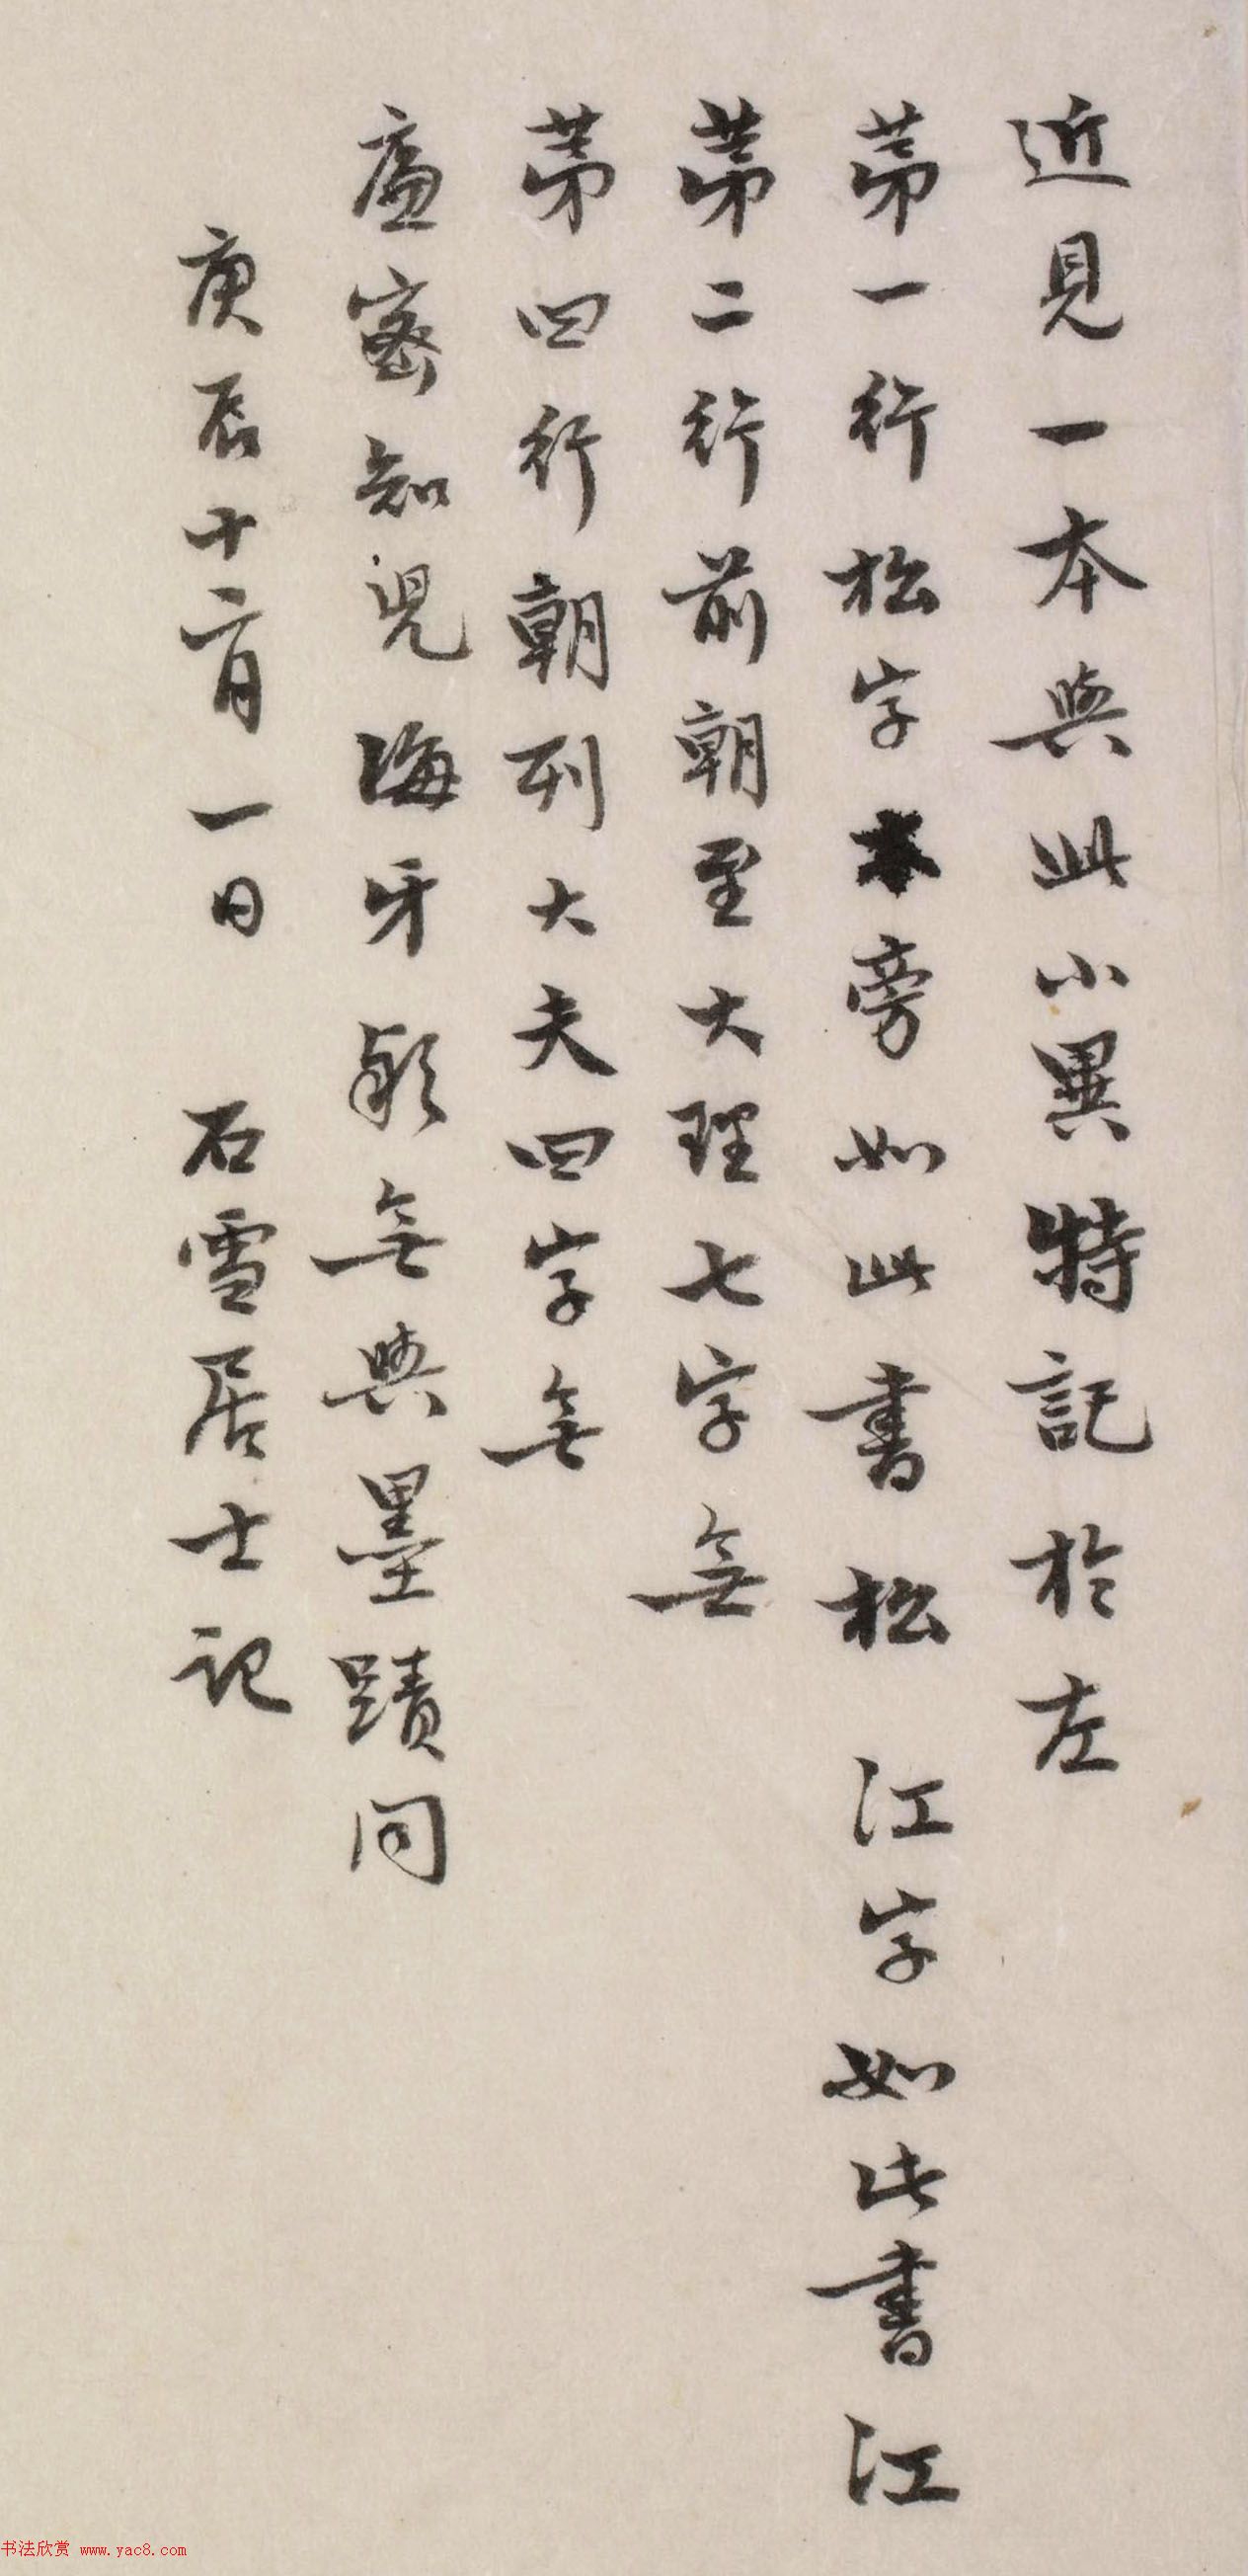 近見一本與此小異特記於左
苐一行松字旁如此書松 江字如此書江
苐二行前朝至大理七字無
苐四行朝列大夫四字無
廉密知兒海牙款無與墨蹟同
庚辰十二月一日 石雪居士記
书法欣赏 www.yac8.com